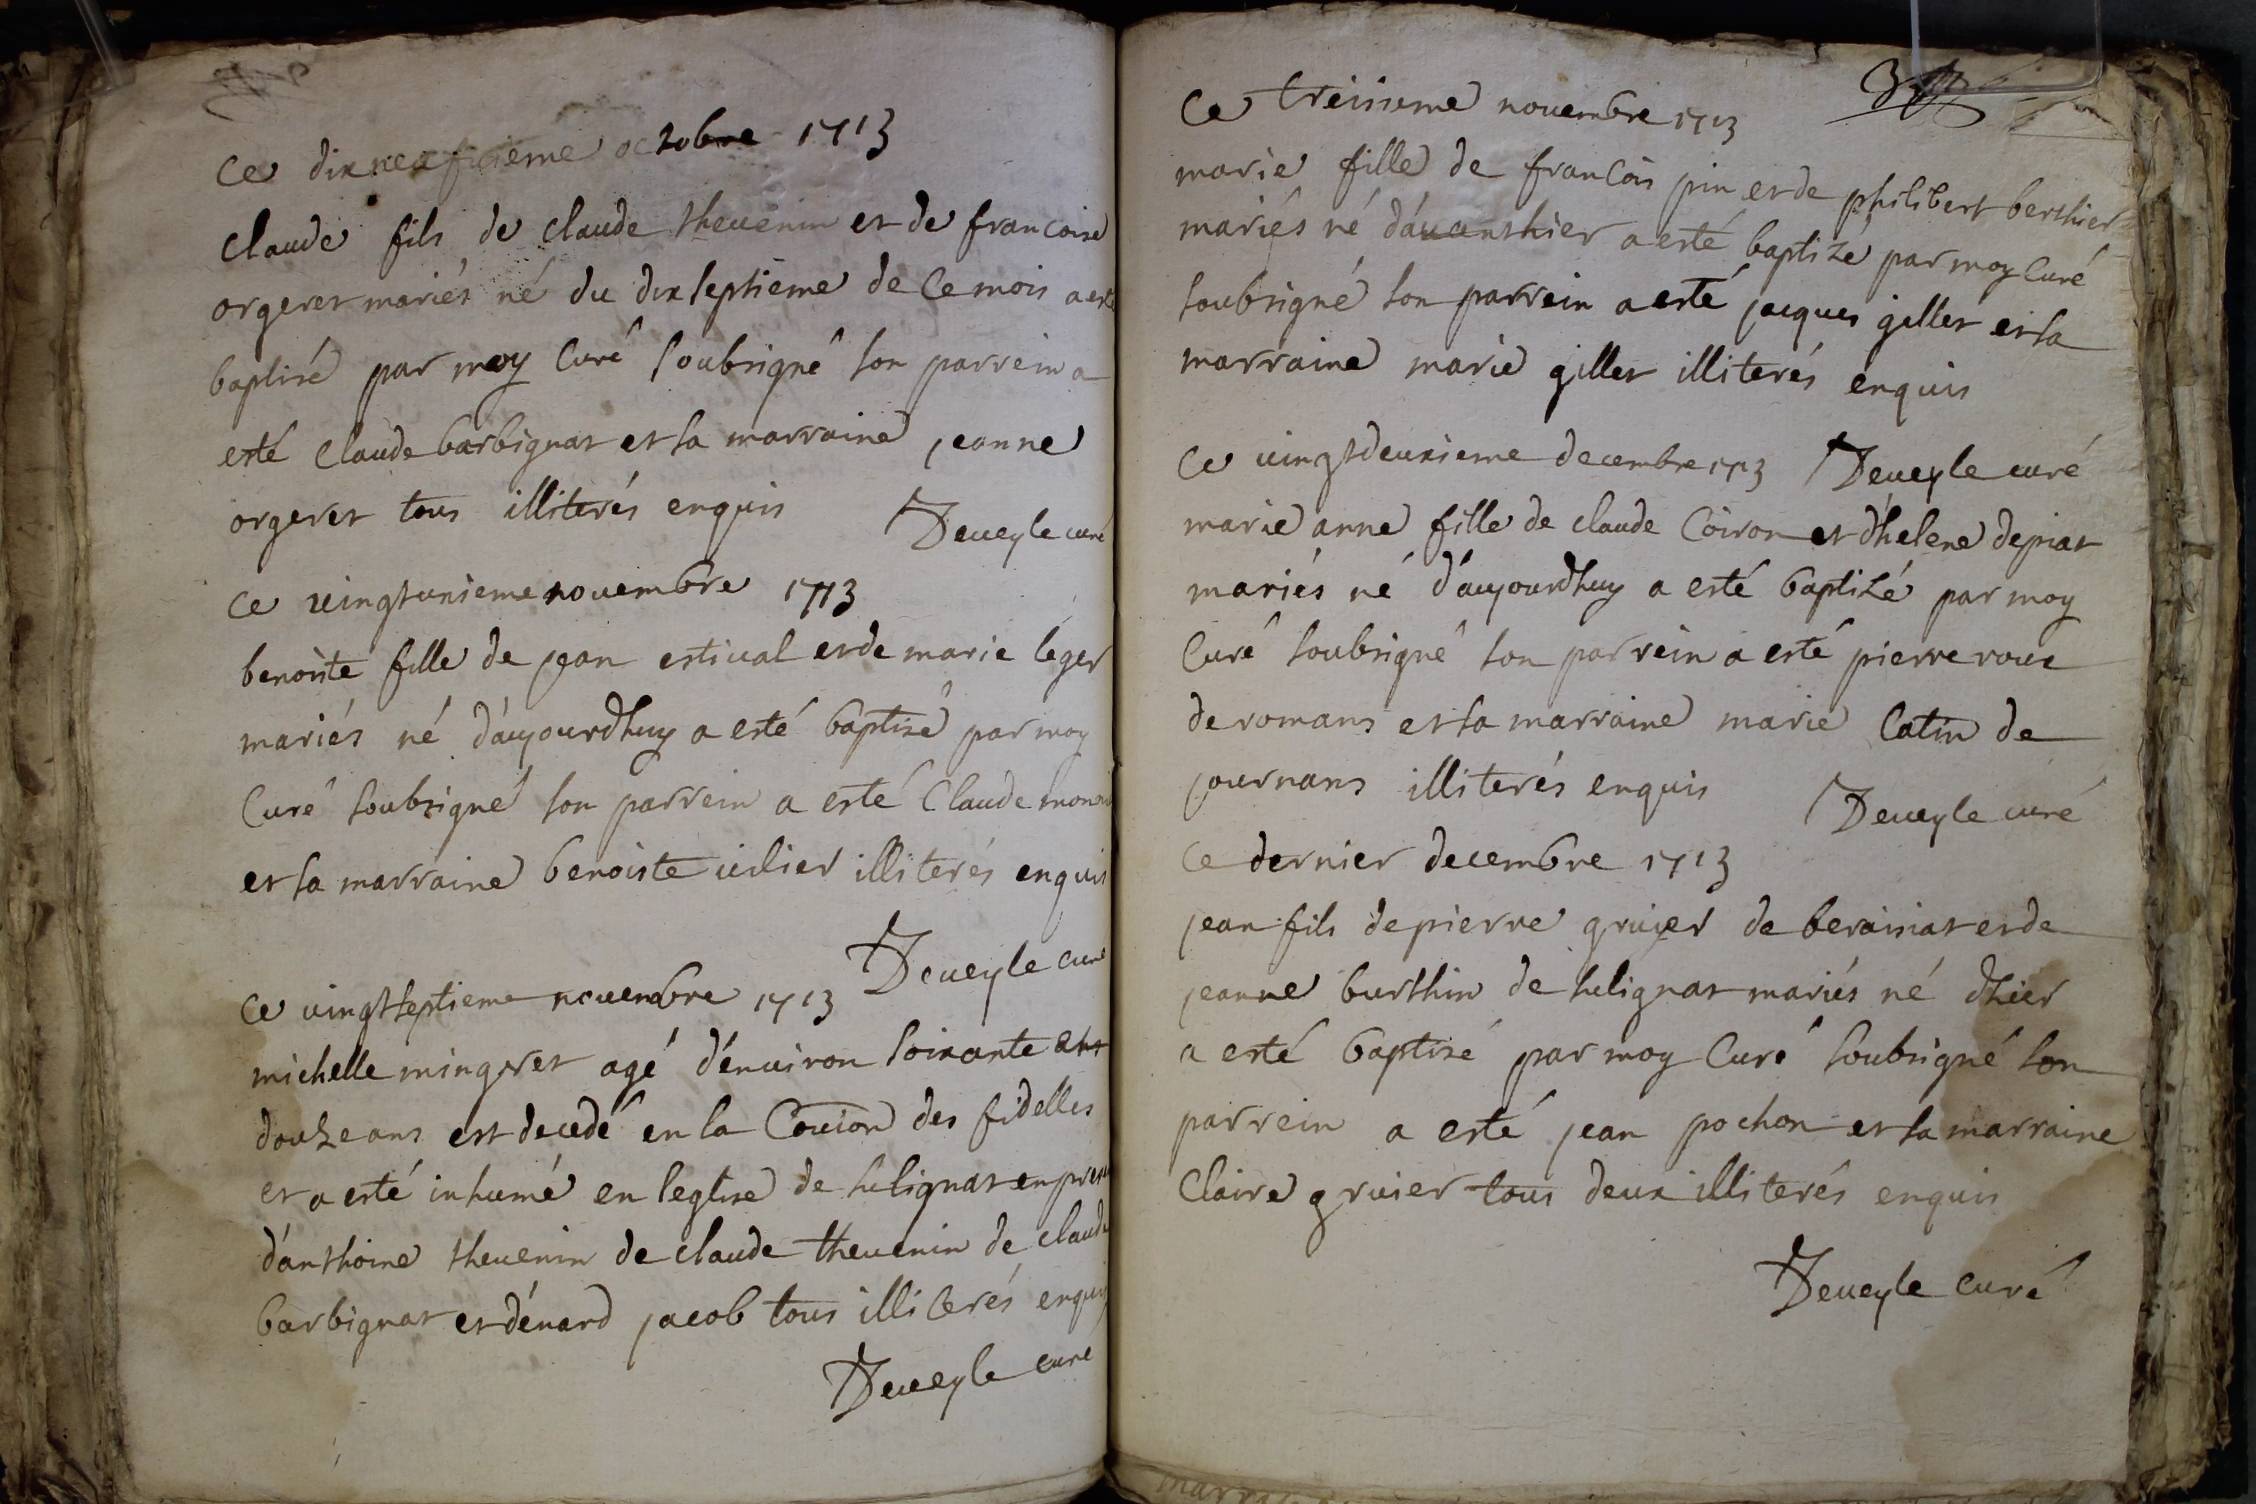 Ce dixneufvieme octobre 1713
Claude fils de claude thevenin et de francoise
orgeret mariés né du dixseptieme de Ce mois a esté
baptisé par moy Curé soubsigné son parrein a
esté Claude barbignat et sa marraine jeanne
orgeret tous illiterés enquis
Deveyle curé
Ce vingtunieme novembre 1713
benoite fille de jean estival et de marie leger
mariés né d'aujourdhuy a esté baptisé par moy
Curé soubsigné son parrein a esté Claude
et sa marraine benoiste illiterés enquis
Deveyle curé
Ce vingtseptieme novembre 1713
michelle mingret agé d'environ soixante et
douze ans est decedé en la Coũion des fidelles
et a esté inhumé en leglise de sulignat en
d'anthoine thevenin de claude thevenin de claude
barbignat et dénard jacob tous illiterés enquis
Deveyle curé
Ce treisieme novembre 1713
marie fille de francois pin et de philibert berthier
mariés né d'avanthier a esté baptizé par moy Curé
soubsigné son parrein a esté jacques gillet et sa
marraine marie gillet illiterés enquis
Deveyle curé
Ce vingtdeuxieme decembre 1713
marie anne fille de claude Coiron et d'helene depiat
mariés né d'aujourdhuy a esté baptizé par moy
Curé soubsigné son parrein a esté pierre roux
de romans et sa marraine marie Catin de
journans illiterés enquis
Deveyle curé
Ce dernier decembre 1713
jean fils de pierre gruier de et de
jeanne burthin de sulignat mariés né d'hier
a esté baptisé par moy Curé soubsigné son
parrein a esté jean pochon et sa marraine
Claire gruier tous deux illiterés enquis
Deveyle curé